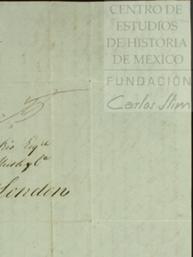 CENTRO DE
ESTUDIOS
DE HISTORIA
DE MEXICO
FUNDACIÓN
Carlos Slim
Esqre
London